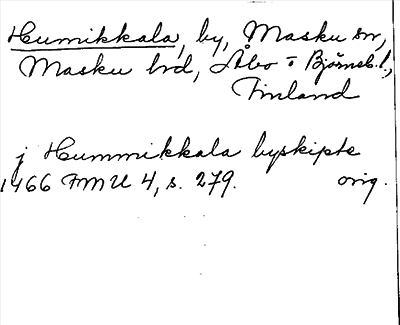 Humikkala, by, Masku sn,
Masku hrd, Åbo o Björneb. l.,
Finland
j Hummikkala byskipte
1466 FMU 4, s. 279. orig.